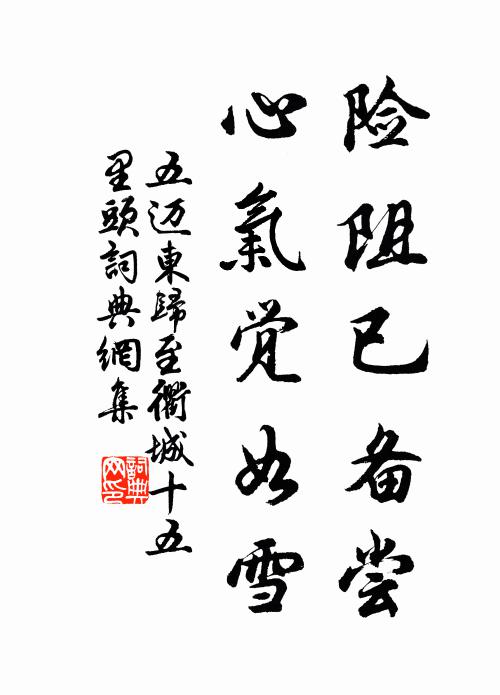 险阻已备尝
心氣觉如雪
五迈東歸至衢城十五
里頭詞典網集
詞典
网印